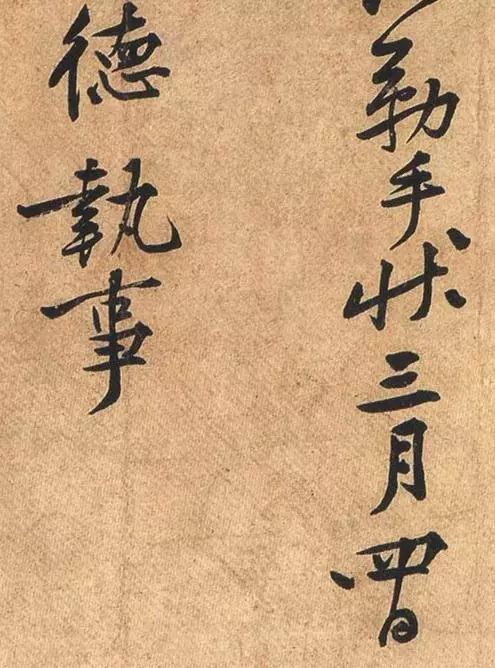 勒手狀三月四日
德執事